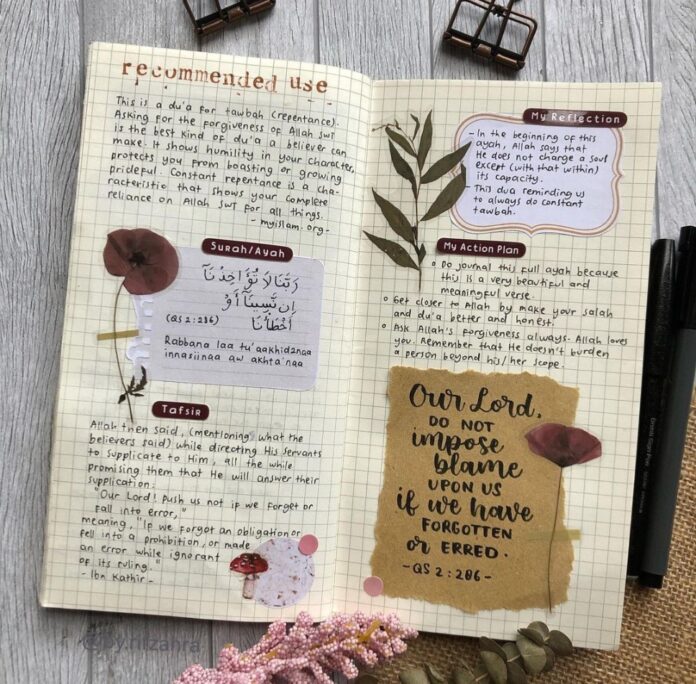 recommended use
This is a du'a for tawbah (repentance).
Asking for the forgiveness of Allah SWT
is the best kind of du'a a believer can
make. It shows humility in your character,
protects you from boasting or growing
prideful. Constant repentance is a cha-
racteristic that shows your complete
reliance on Allah SWT for all things.
- myislam.org -
Surah/Ayah
رَبَّنَا لَا تُؤَاخِذْنَآ
إِن نَّسِينَآ أَوْ
أَخْطَأْنَا
(QS 2:286)
Rabbana laa tu'aakhidznaa
innasiinaa aw akhta'naa
Tafsir
Allah then said, (mentioning what the
believers said) while directing His servants
to supplicate to Him, all the while
promising them that He will answer their
supplication:
"Our Lord! Push us not if we forget or
fall into error,"
meaning, "If we forgot an obligation or
fell into a prohibition, or made
an error while ignorant
of its ruling."
- Ibn Kathir -
My Reflection
- In the beginning of this
ayah, Allah says that
He does not charge a soul
except (with that within)
its capacity.
- This dua reminding us
to always do constant
tawbah.
My Action Plan
Do journal this full ayah because
this is a very beautiful and
meaningful verse.
Get closer to Allah by make your salah
and du'a better and honest.
Ask Allah's forgiveness always. Allah loves
you. Remember that He doesn't burden
a person beyond his/her scope.
Our Lord,
DO NOT
impose
blame
UPON US
if we have
FORGOTTEN
or ERRED.
- QS 2:286 -